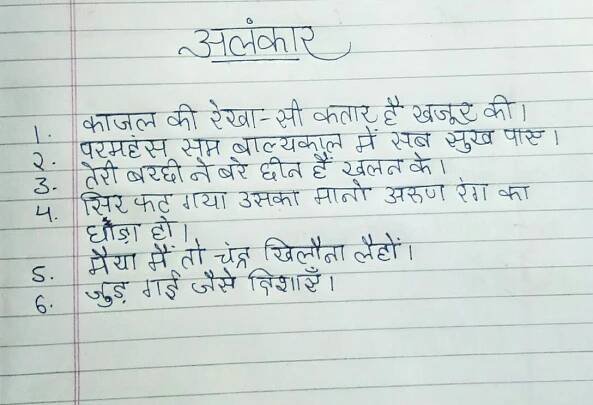 अलंकार
1. काजल की रेखा-सी कतार है खजूर की।
2. परमहंस सम बाल्यकाल में सब सुख पाए।
3. तेरी बरछी ने बरे छीन हैं खलन के।
4. सिर फट गया उसका मानो अरुण रंग का
घड़ा हो।
5. मैया मैं तो चंद्र खिलौना लैहों।
6. जुड़ गई जैसे दिशाएँ।